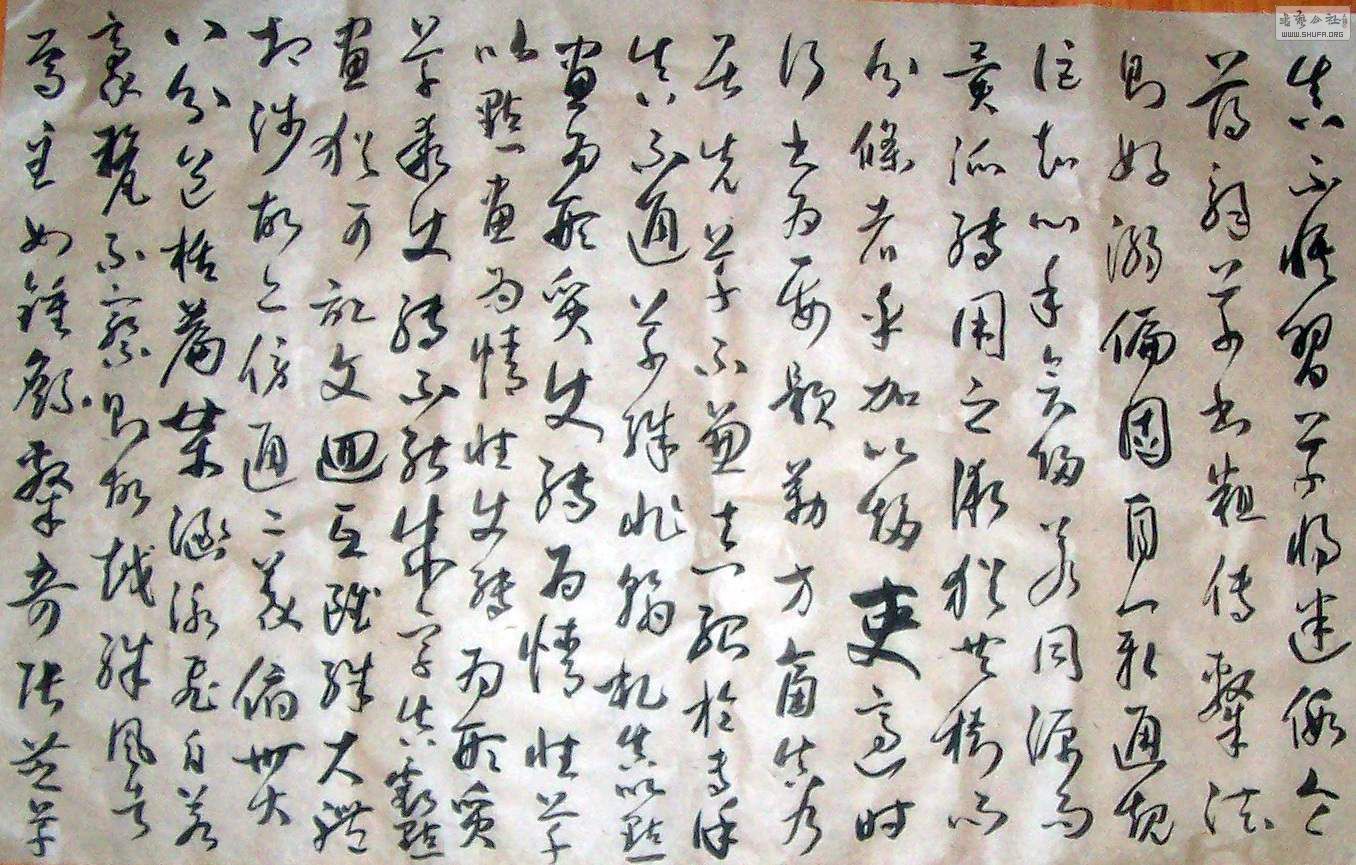 真不悟習草將迷假令
薄解草書粗傳隸法
則好溺偏固自閡通規
詎知心手會歸若同源而
異派轉用之術猶共樹而
分條者乎加以趨吏適時
行書為要題勒方畐真乃
居先草不兼真殆於專謹
真不通草殊非翰札真以點
畫為形質使轉為情性草
以點畫為情性使轉為形質
草乖使轉不能成字真虧點
畫猶可記文迴互雖殊大體
相涉故亦傍通二篆俯貫
八分包括篇章涵泳飛白若
豪釐不察則胡越殊風者
焉至如鍾繇隸奇張芝草
書藝公社
WWW.SHUFA.ORG